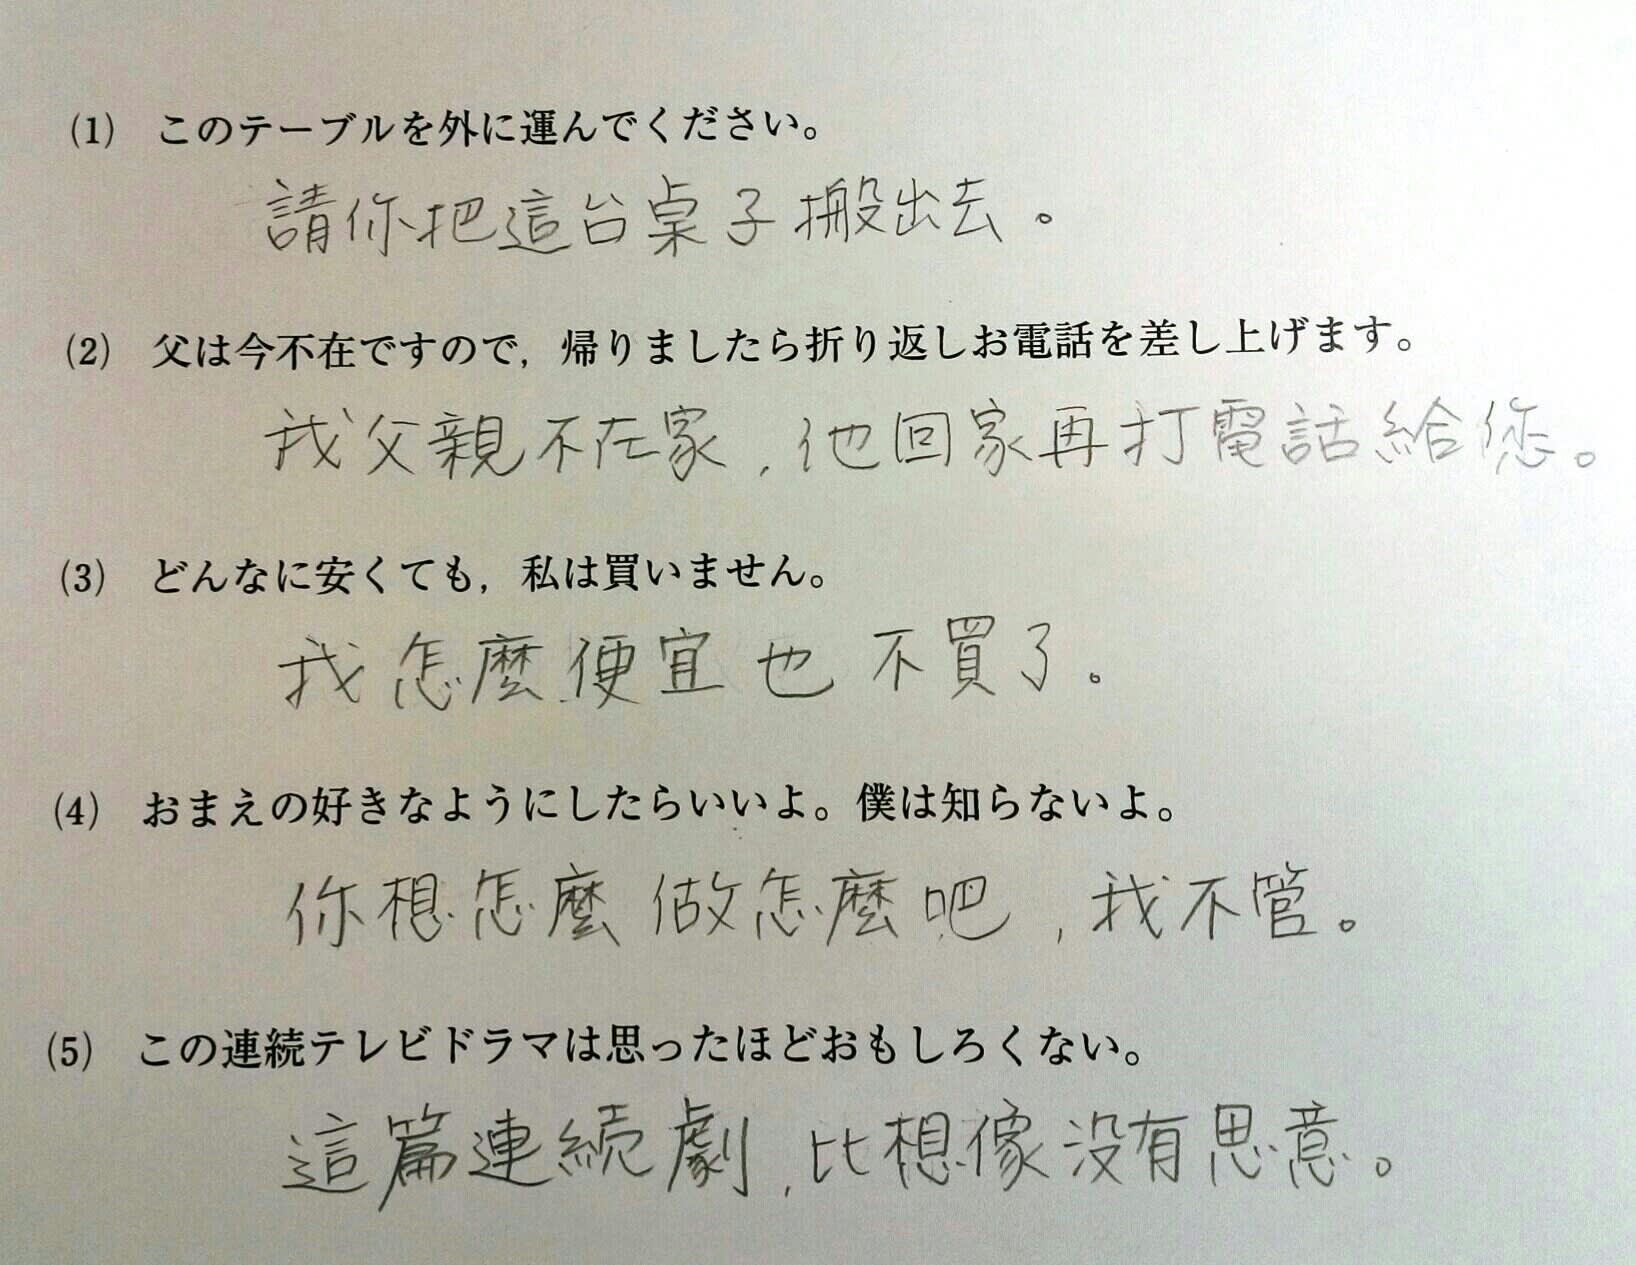 (1) このテーブルを外に運んでください。
請你把這台桌子搬出去。
(2) 父は今不在ですので，帰りましたら折り返しお電話を差し上げます。
我父親不在家，他回家再打電話給您。
(3) どんなに安くても，私は買いません。
我怎麼便宜也不買了。
(4) おまえの好きなようにしたらいいよ。僕は知らないよ。
你想怎麼做怎麼吧，我不管。
(5) この連続テレビドラマは思ったほどおもしろくない。
這篇連続劇，比想像没有思意。